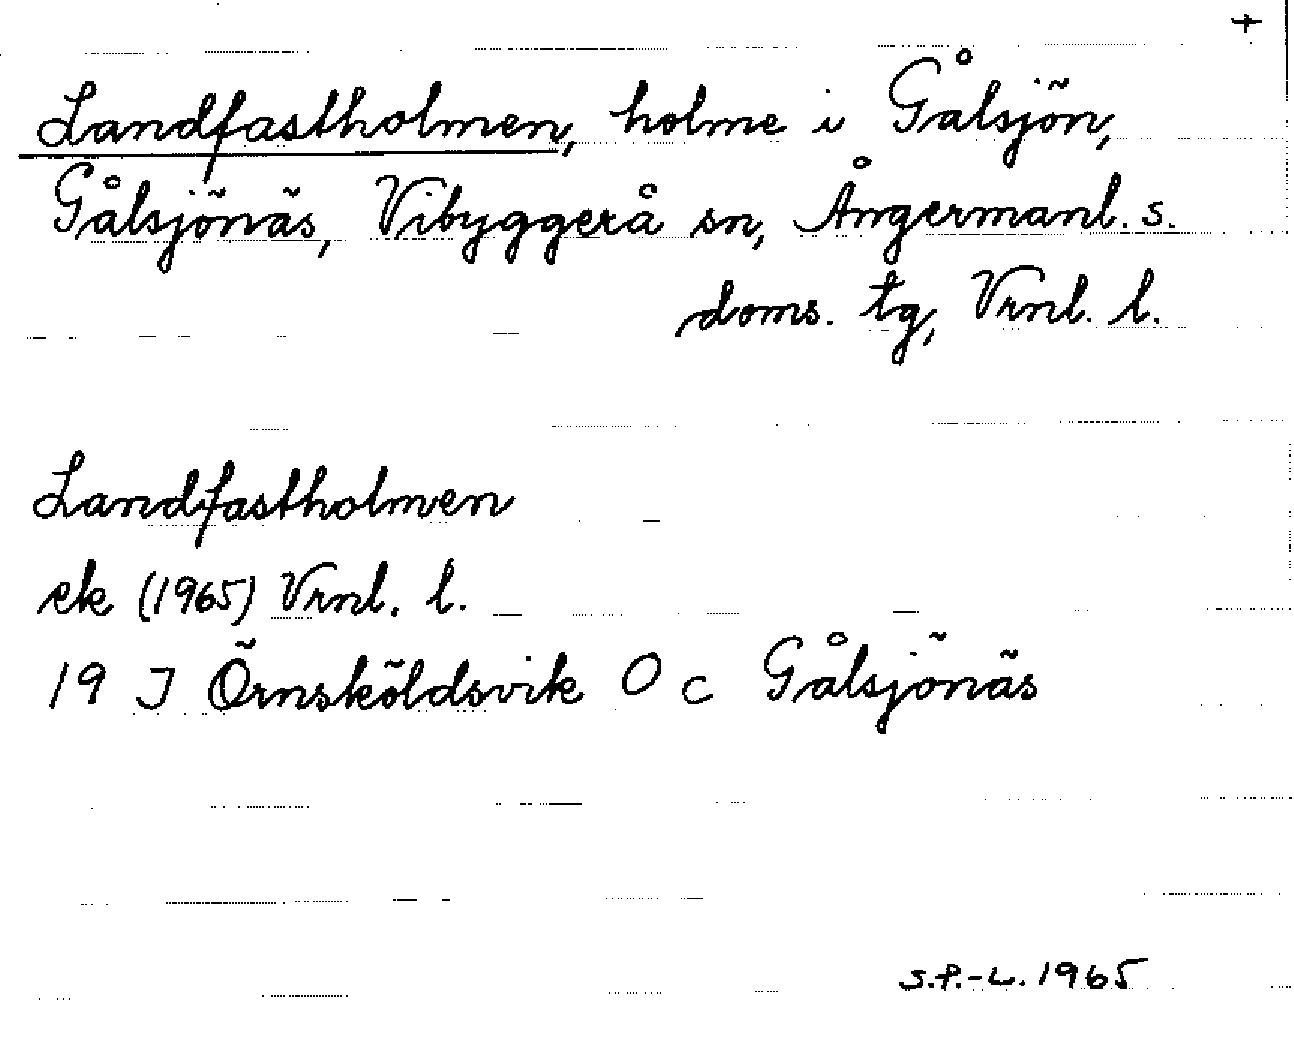 +
Landfastholmen, holme i Gålsjön,
Gålsjönäs, Vibyggerå sn, Ångermanl. s.
doms. tg, Vrnl. l.
Landfastholmen
ek (1965) Vrnl. l.
19 J Örnsköldsvik O c Gålsjönäs
S.P.-L. 1965